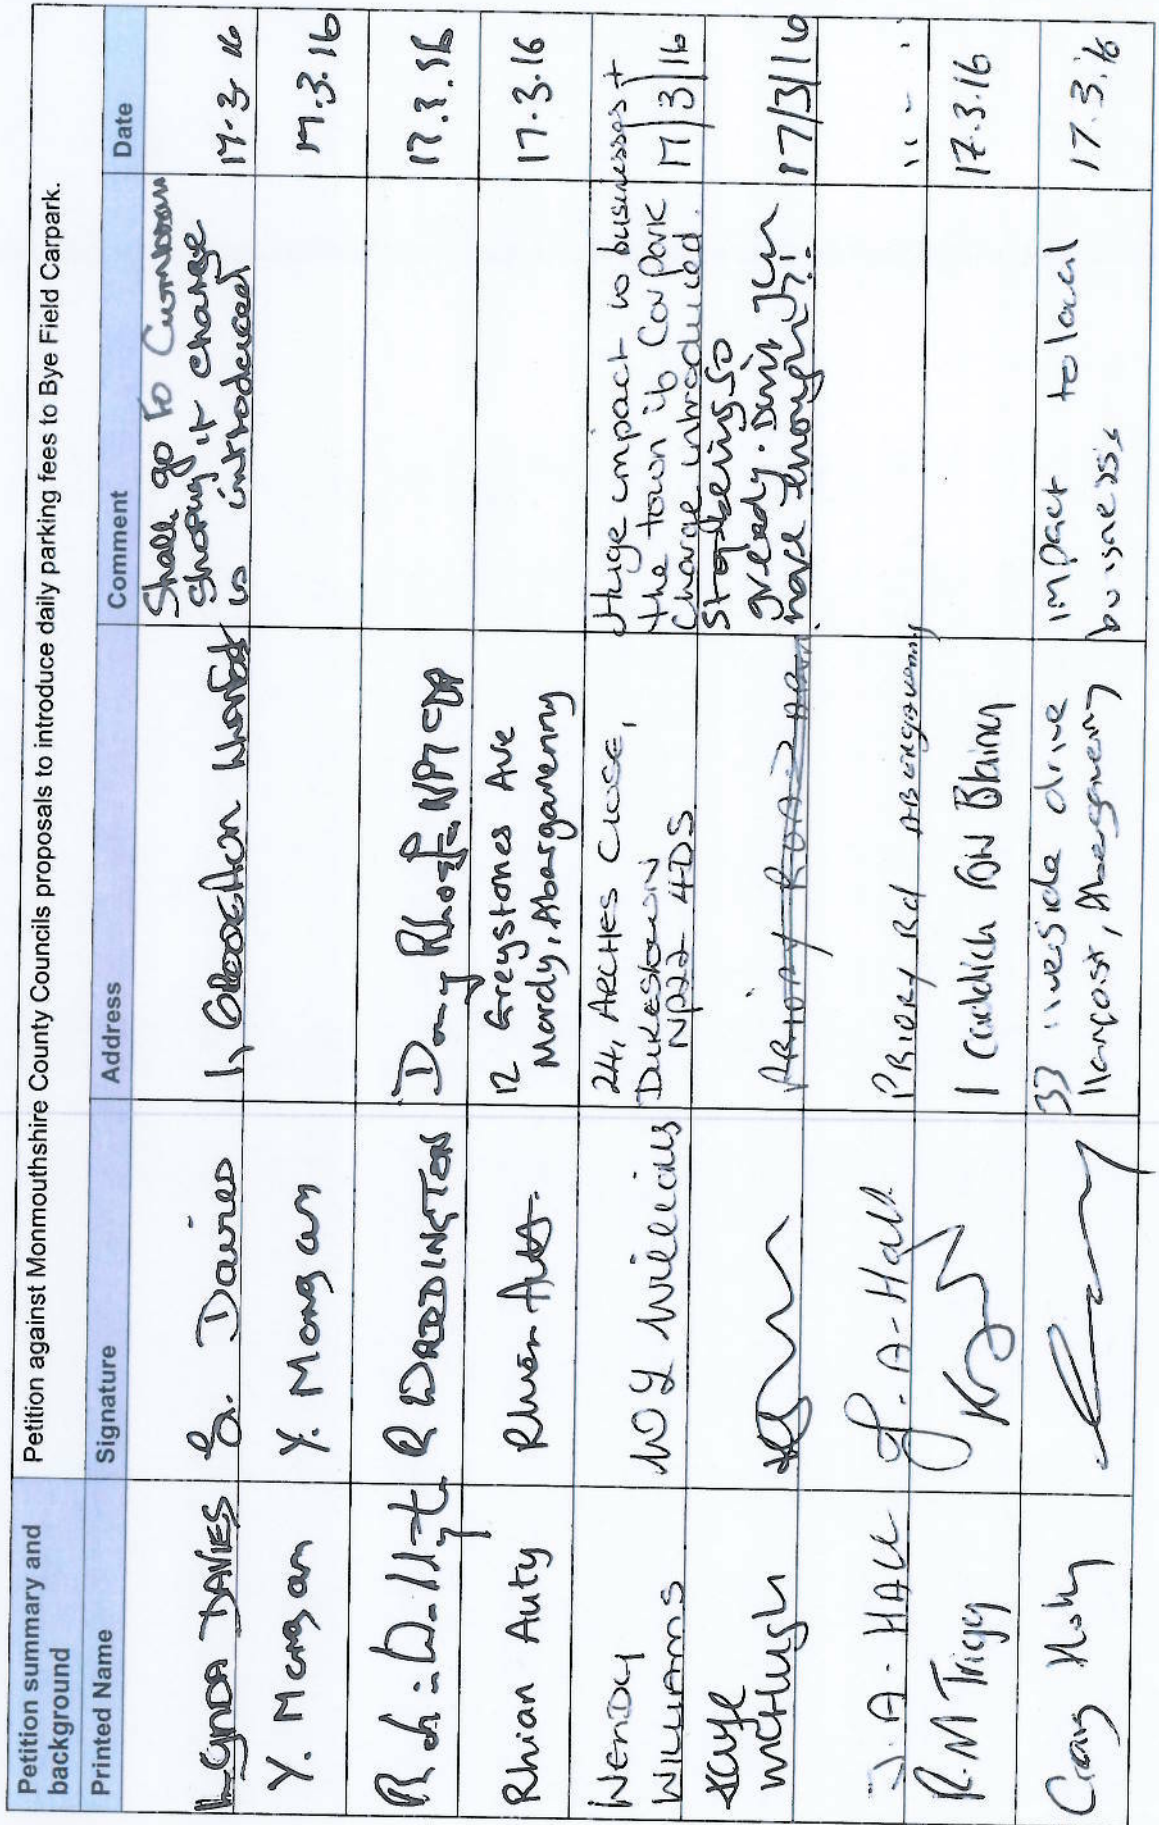 Petition summary and background
Petition against Monmouthshire County Councils proposals to introduce daily parking fees to Bye Field Carpark.
Printed Name Signature Address Comment Date
LYNDA DAVIES L. Davies 1, Shall go to Cwmbran
shoping if charge
is introduced 17-3-16
Y. Morgan Y. Morgan 17.3.16
R WADDINGTON 17.3.16
Rhian Auty Rhian Auty 12 Greystones Ave
Mardy, Abargavenny 17-3-16
WENDY
WILLIAMS W Y Williams 24, ARCHES CLOSE,
DUKESTOWN
NP22 4DS Huge impact to businesses +
the town if Car park
charge introduced. 17/3/16
Kaye
McHugh Stop being so
greedy. Don't you
have enough?! 17/3/16
J. A. HALL J. A. Hall PRIORY Rd ABERGAVENNY " - . .
R. M Trigg 1 17.3.16
Craig 33 riverside drive
llanfoist, Abergavenny impact to local
buisness, 17.3.16